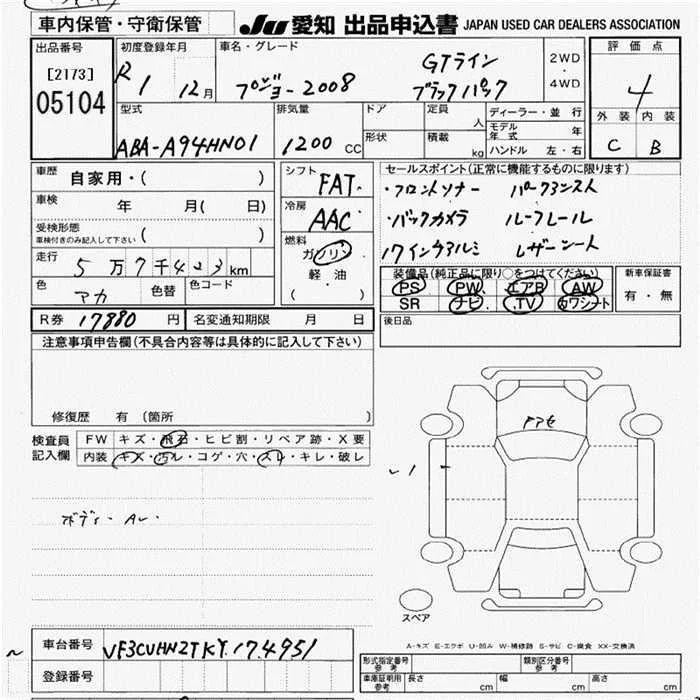 車内保管・守衛保管
JU 愛知 出品申込書 JAPAN USED CAR DEALERS ASSOCIATION
出品番号
[2173]
05104
初度登録年月
R 1 12月
車名・グレード
プジョー2008
GTライン
ブラックパック
2WD
・
4WD
評価点
4
外装 内装
C B
型式
ABA-A94HN01
排気量
1200 CC
ドア
形状
定員 人
積載 kg
ディーラー・並行
モデル年式 年
ハンドル 左・右
車歴 自家用・( )
車検 年 月( 日)
受検形態
車検付きのみ記入して下さい ( )
走行 5万7千423km
色 アカ 色替 色コード
シフト FAT
冷房 AAC
燃料
ガソリン
軽・油
( )
セールスポイント(正常に機能するものに限ります)
・フロントソナー パークアシスト
・バックカメラ ルーフレール
17インチアルミ レザーシート
装備品(純正品に限り○をつけてください)
PS PW エアB AW
SR ナビ TV カワシート
新車保証書
有・無
R券 17880 円 名変通知期限 月 日
後日品
注意事項申告欄(不具合内容等は具体的に記入して下さい)
修復歴 有 (箇所 )
検査員
記入欄
FW キズ・飛石・ヒビ割・リペア跡・X要
内装 キズ・汚レ・コゲ・穴・スレ・キレ・破レ
ボディ・
スペア
A-キズ E-エクボ U-凹み W-補修跡 S-サビ C-腐食 XX-交換済
車台番号 VF3CUHNZTKY174951
登録番号
形式指定番号
参考
類別区分番号
参考
車庫証明用
参考
長さ cm 幅 cm 高さ cm